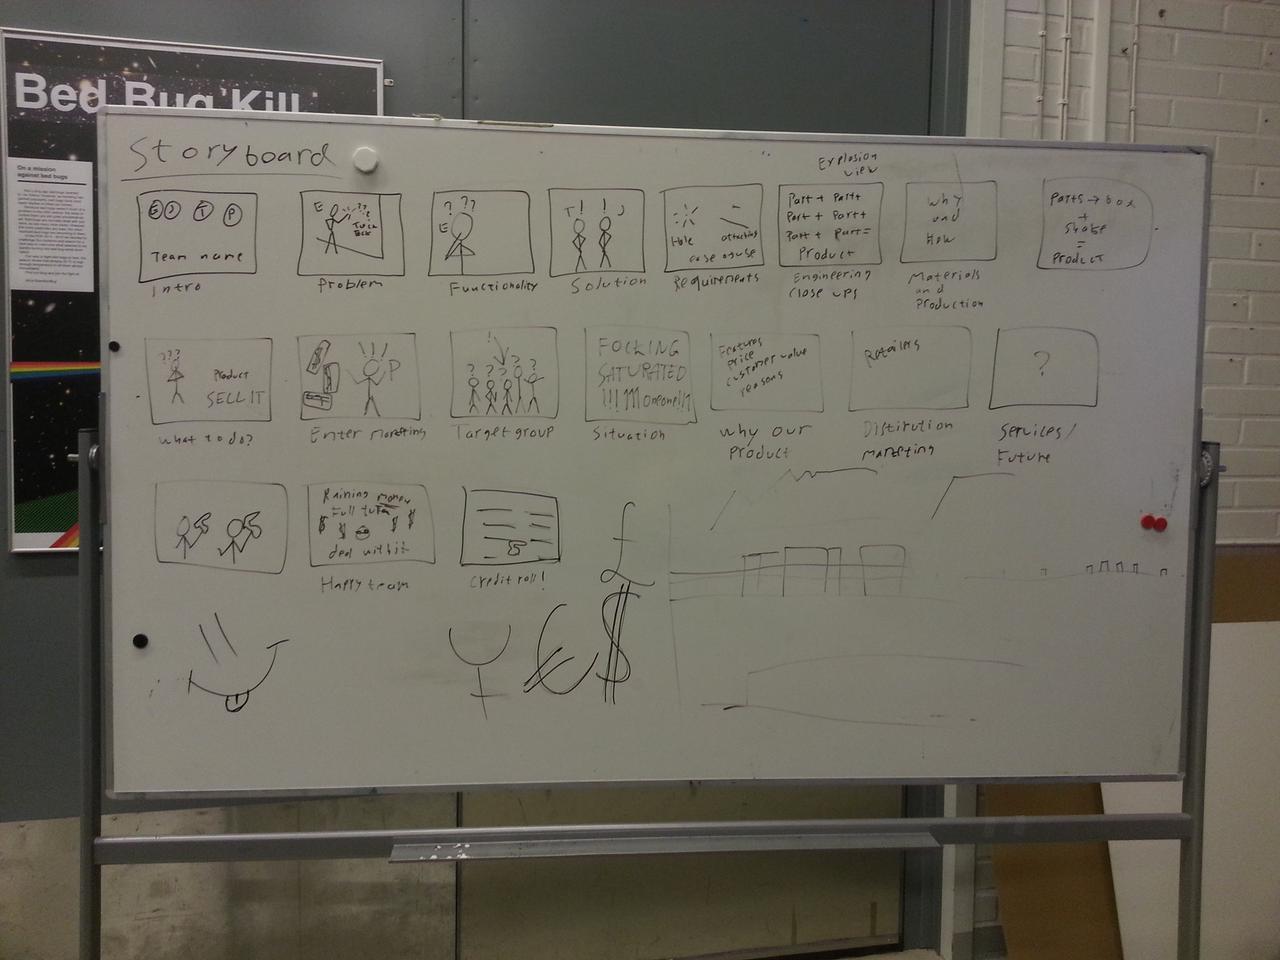 Bed Bug Kill
On a mission
against bed bugs
Storyboard
E J T P
Team name
Intro
E ??
Problem
? ? ?
E
Functionality
T ! ! J
Solution
Hole attaching
case abuse
Requirements
Explosion
view
Part + Part+
Part + Part+
Part + Part=
Product
Engineering
close ups
Why
and
How
Materials
and
Production
Parts → box
+
Shake
=
Product
???
Product
SELL IT
What to do?
!!! P
Enter marketing
? ! ? ? ?
Target group
FOCKING
SATURATED
Situation
Features
Price
customer value
reasons
Why our
Product
Retailers
Distirution
marketing
?
Services/
Future
Raining money
$ $ $ $
deal with it
Happy team
Credit roll!
£
€ $